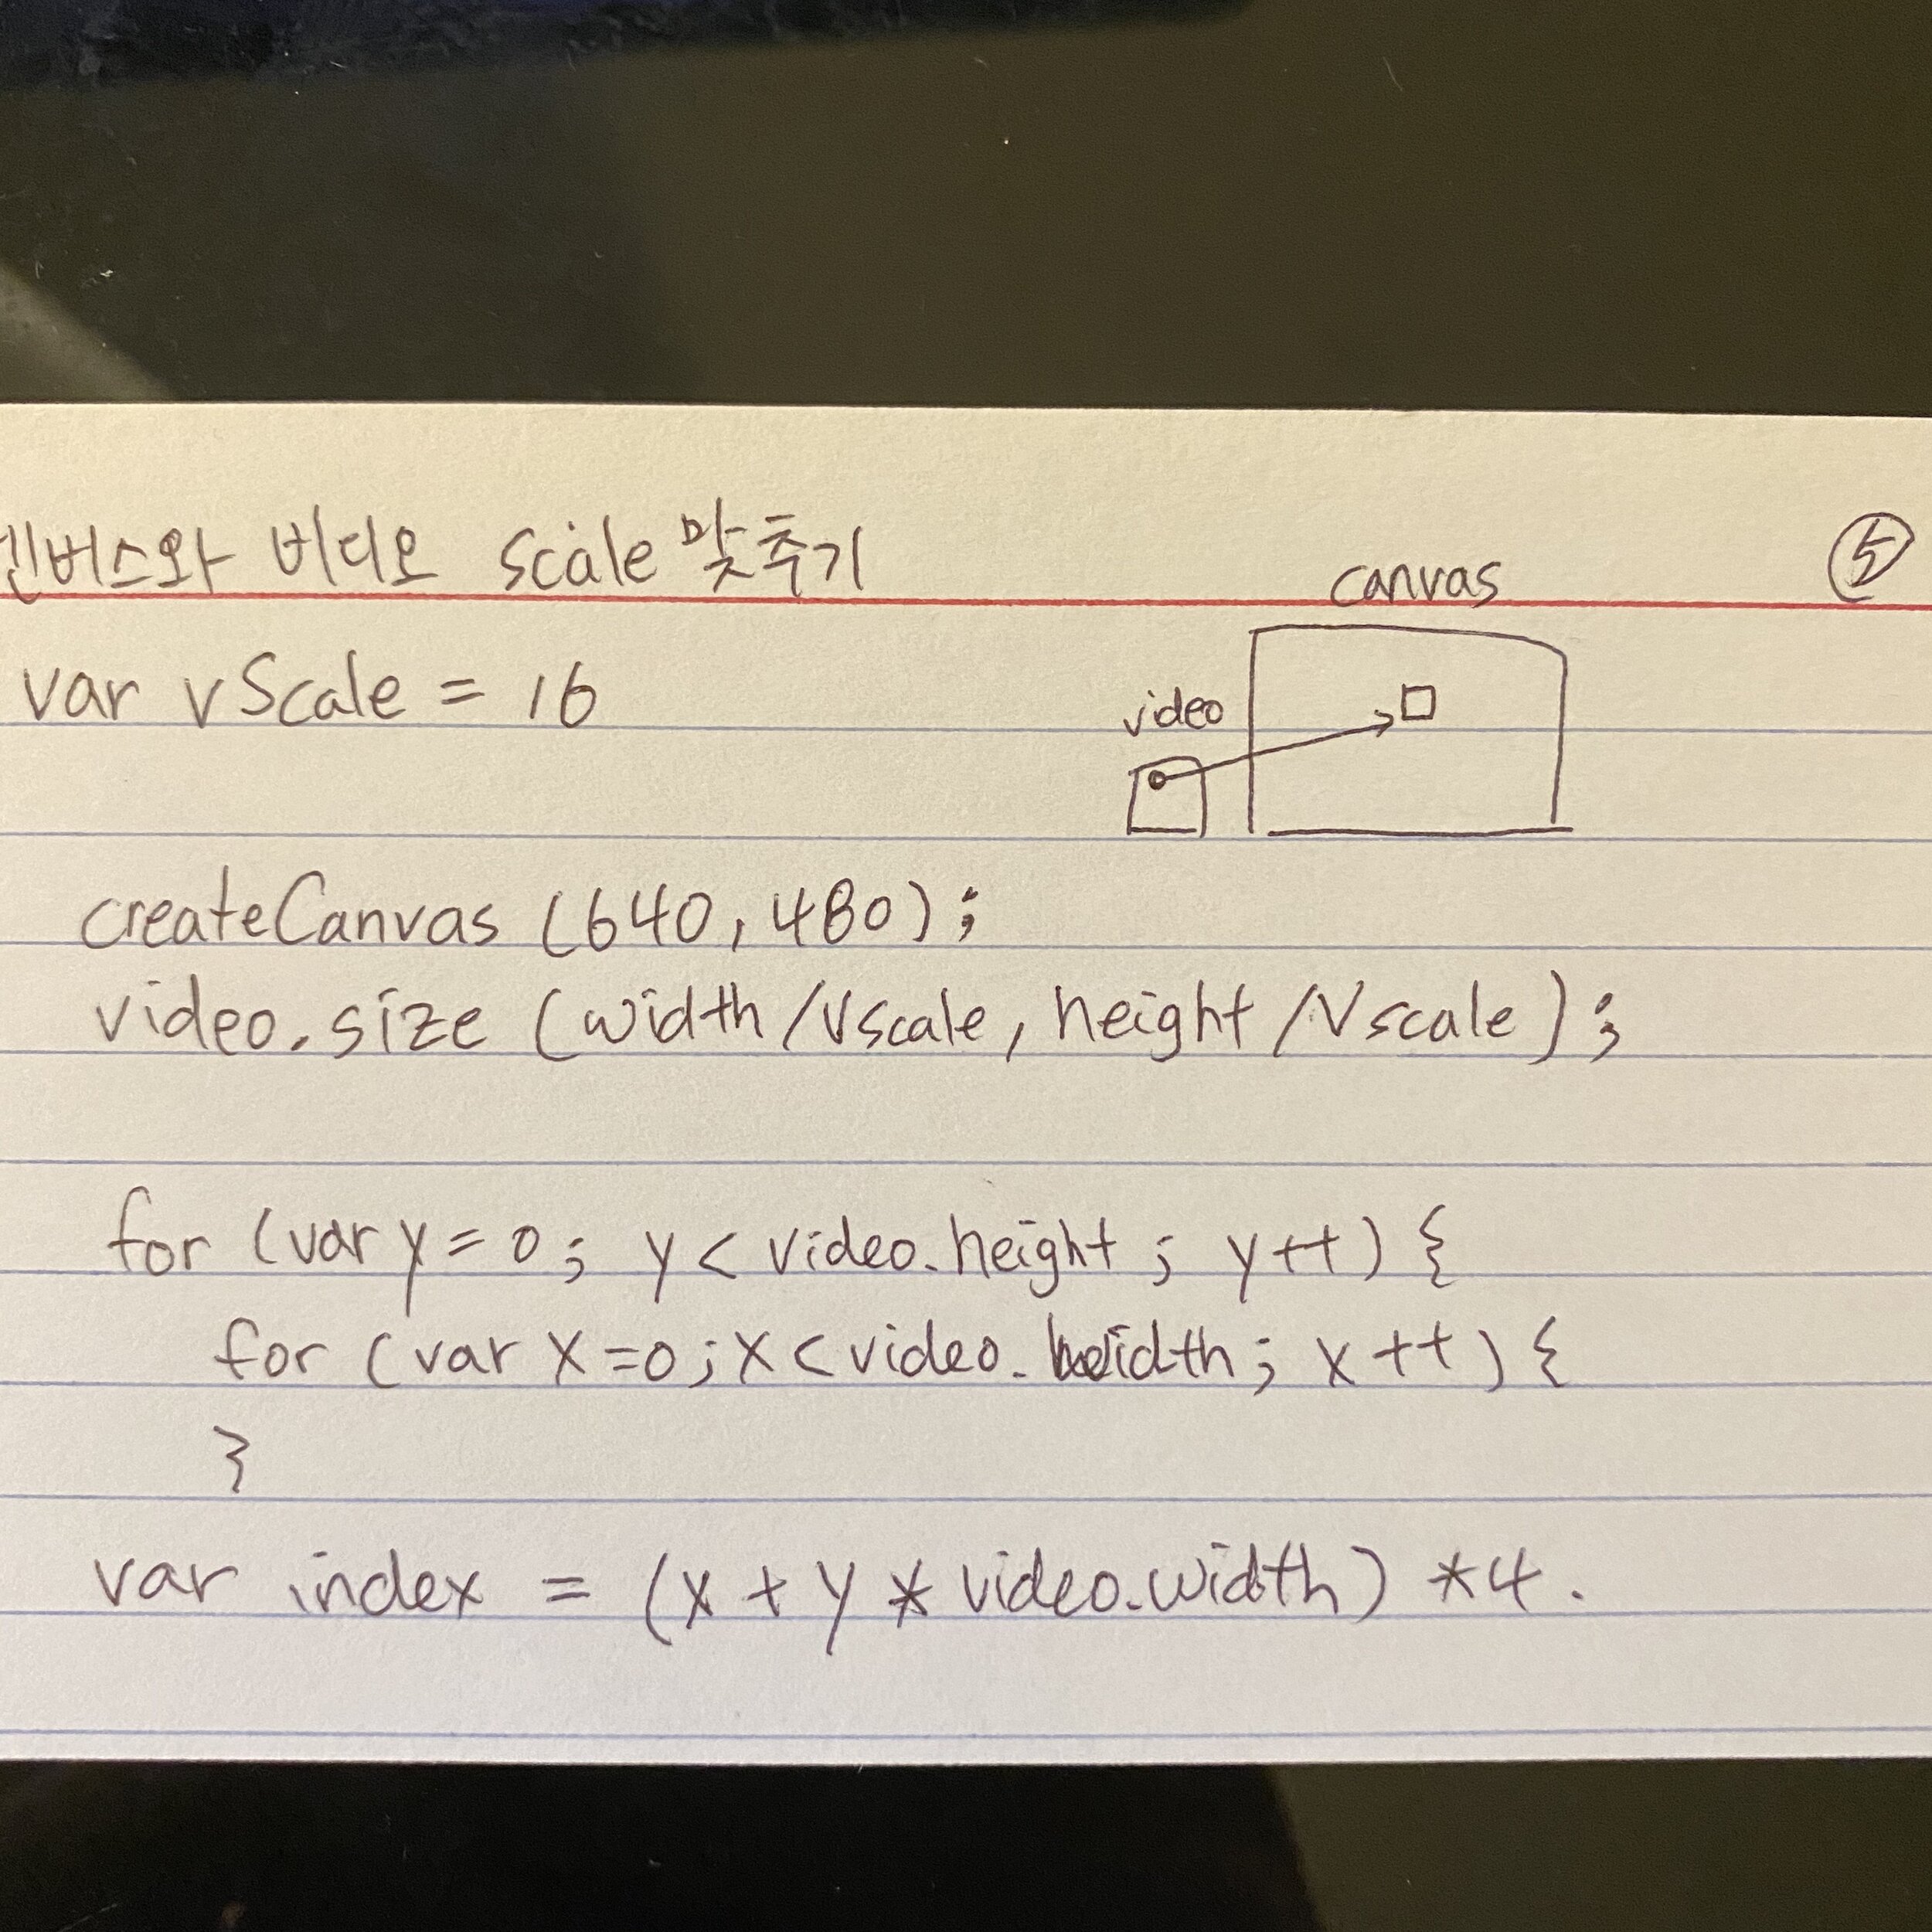 캔버스와 비디오 scale 맞추기
canvas
⑤
var vScale = 16
video
createCanvas (640, 480);
video.size (width/Vscale, height/Vscale);
for (var y = 0; y < video.height; y++) {
for (var x = 0; x < video.width; x++) {
}
var index = (x + y * video.width) *4.